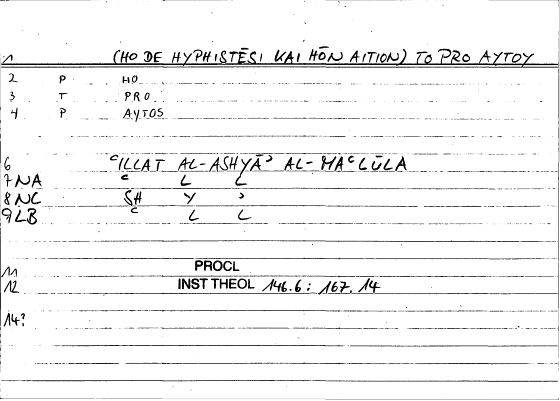 1 (HO DE HYPHISTĒSI KAI HŌN AITION) TO PRO AYTOY
2 P HO
3 T PRO
4 P AYTOS
6 ʿILLAT AL-ASHYĀʾ AL-MAʿLŪLA
7 NA ʿ L L
8 NC SH Y ʾ
9 LB ʿ L L
11 PROCL
12 INST THEOL 146.6 : 167.14
14?